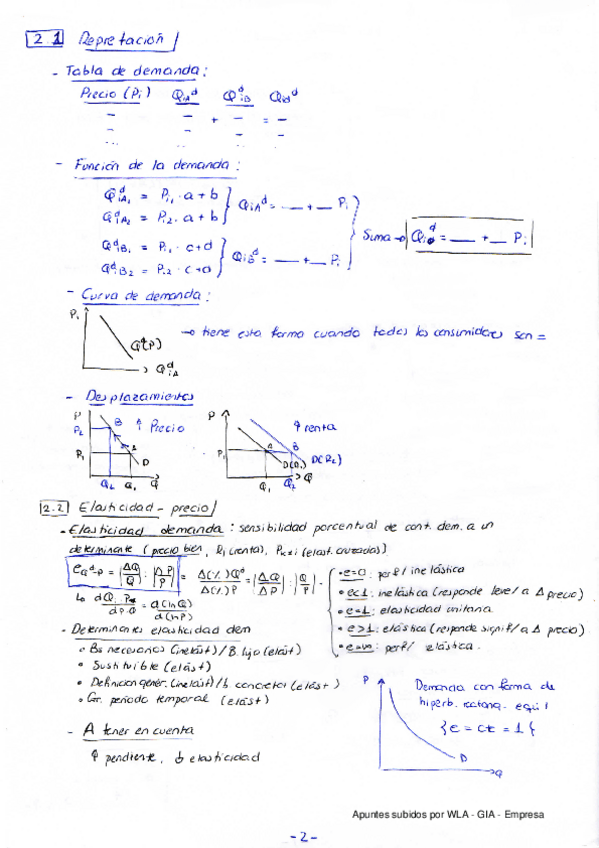 2.1 Repretación
- Tabla de demanda:
Precio (Pi) QiA^d QiB^d Qid^d
- - + - = -
- - -
... -- --
- Función de la demanda:
Q^d iA1 = Pi1 · a + b
Q^d iA2 = Pi2 · a + b } QiA^d = __ + __ Pi
Q^d iB1 = Pi1 · c + d
Q^d iB2 = Pi2 · c + d } QiB^d = __ + __ Pi
Suma → Qi^d = __ + __ Pi
- Curva de demanda:
Pi Q(P) Q^d iA
→ tiene esta forma cuando todos los consumidores son =
- Desplazamientos
P P2 P1 B A D Q2 Q1 Q ↑ Precio
P P1 A B D(R1) D(R2) Q1 Q2 Q ↑ renta
2.2 Elasticidad-precio
- Elasticidad demanda: sensibilidad porcentual de cant. dem. a un
determinante (precio bien, (renta), (elast. cruzadas))
eQd-P = |ΔQ/Q| : |ΔP/P| = Δ(%) Q^d / Δ(%) P = |ΔQ/ΔP| : |Q/P|
= d(lnQ) / d(lnP)
• e=0: perf/ inelástica
• e<1: inelástica (responde leve/ a Δ precio)
• e=1: elasticidad unitaria
• e>1: elástica (responde signif/ a Δ precio)
• e=∞: perf/ elástica.
- Determinantes elasticidad dem
• Bs necesarios (inelást) / B. lujo (elást)
• Sustituible (elást)
• Definición gener. (inelást) / b concretos (elást)
• Gr. periodo temporal (elást)
- A tener en cuenta
↑ pendiente, ↓ elasticidad
P D Q
Demanda con forma de
hiperb. rectang.
{e = ct = 1}
Apuntes subidos por WLA - GIA - Empresa
- 2 -